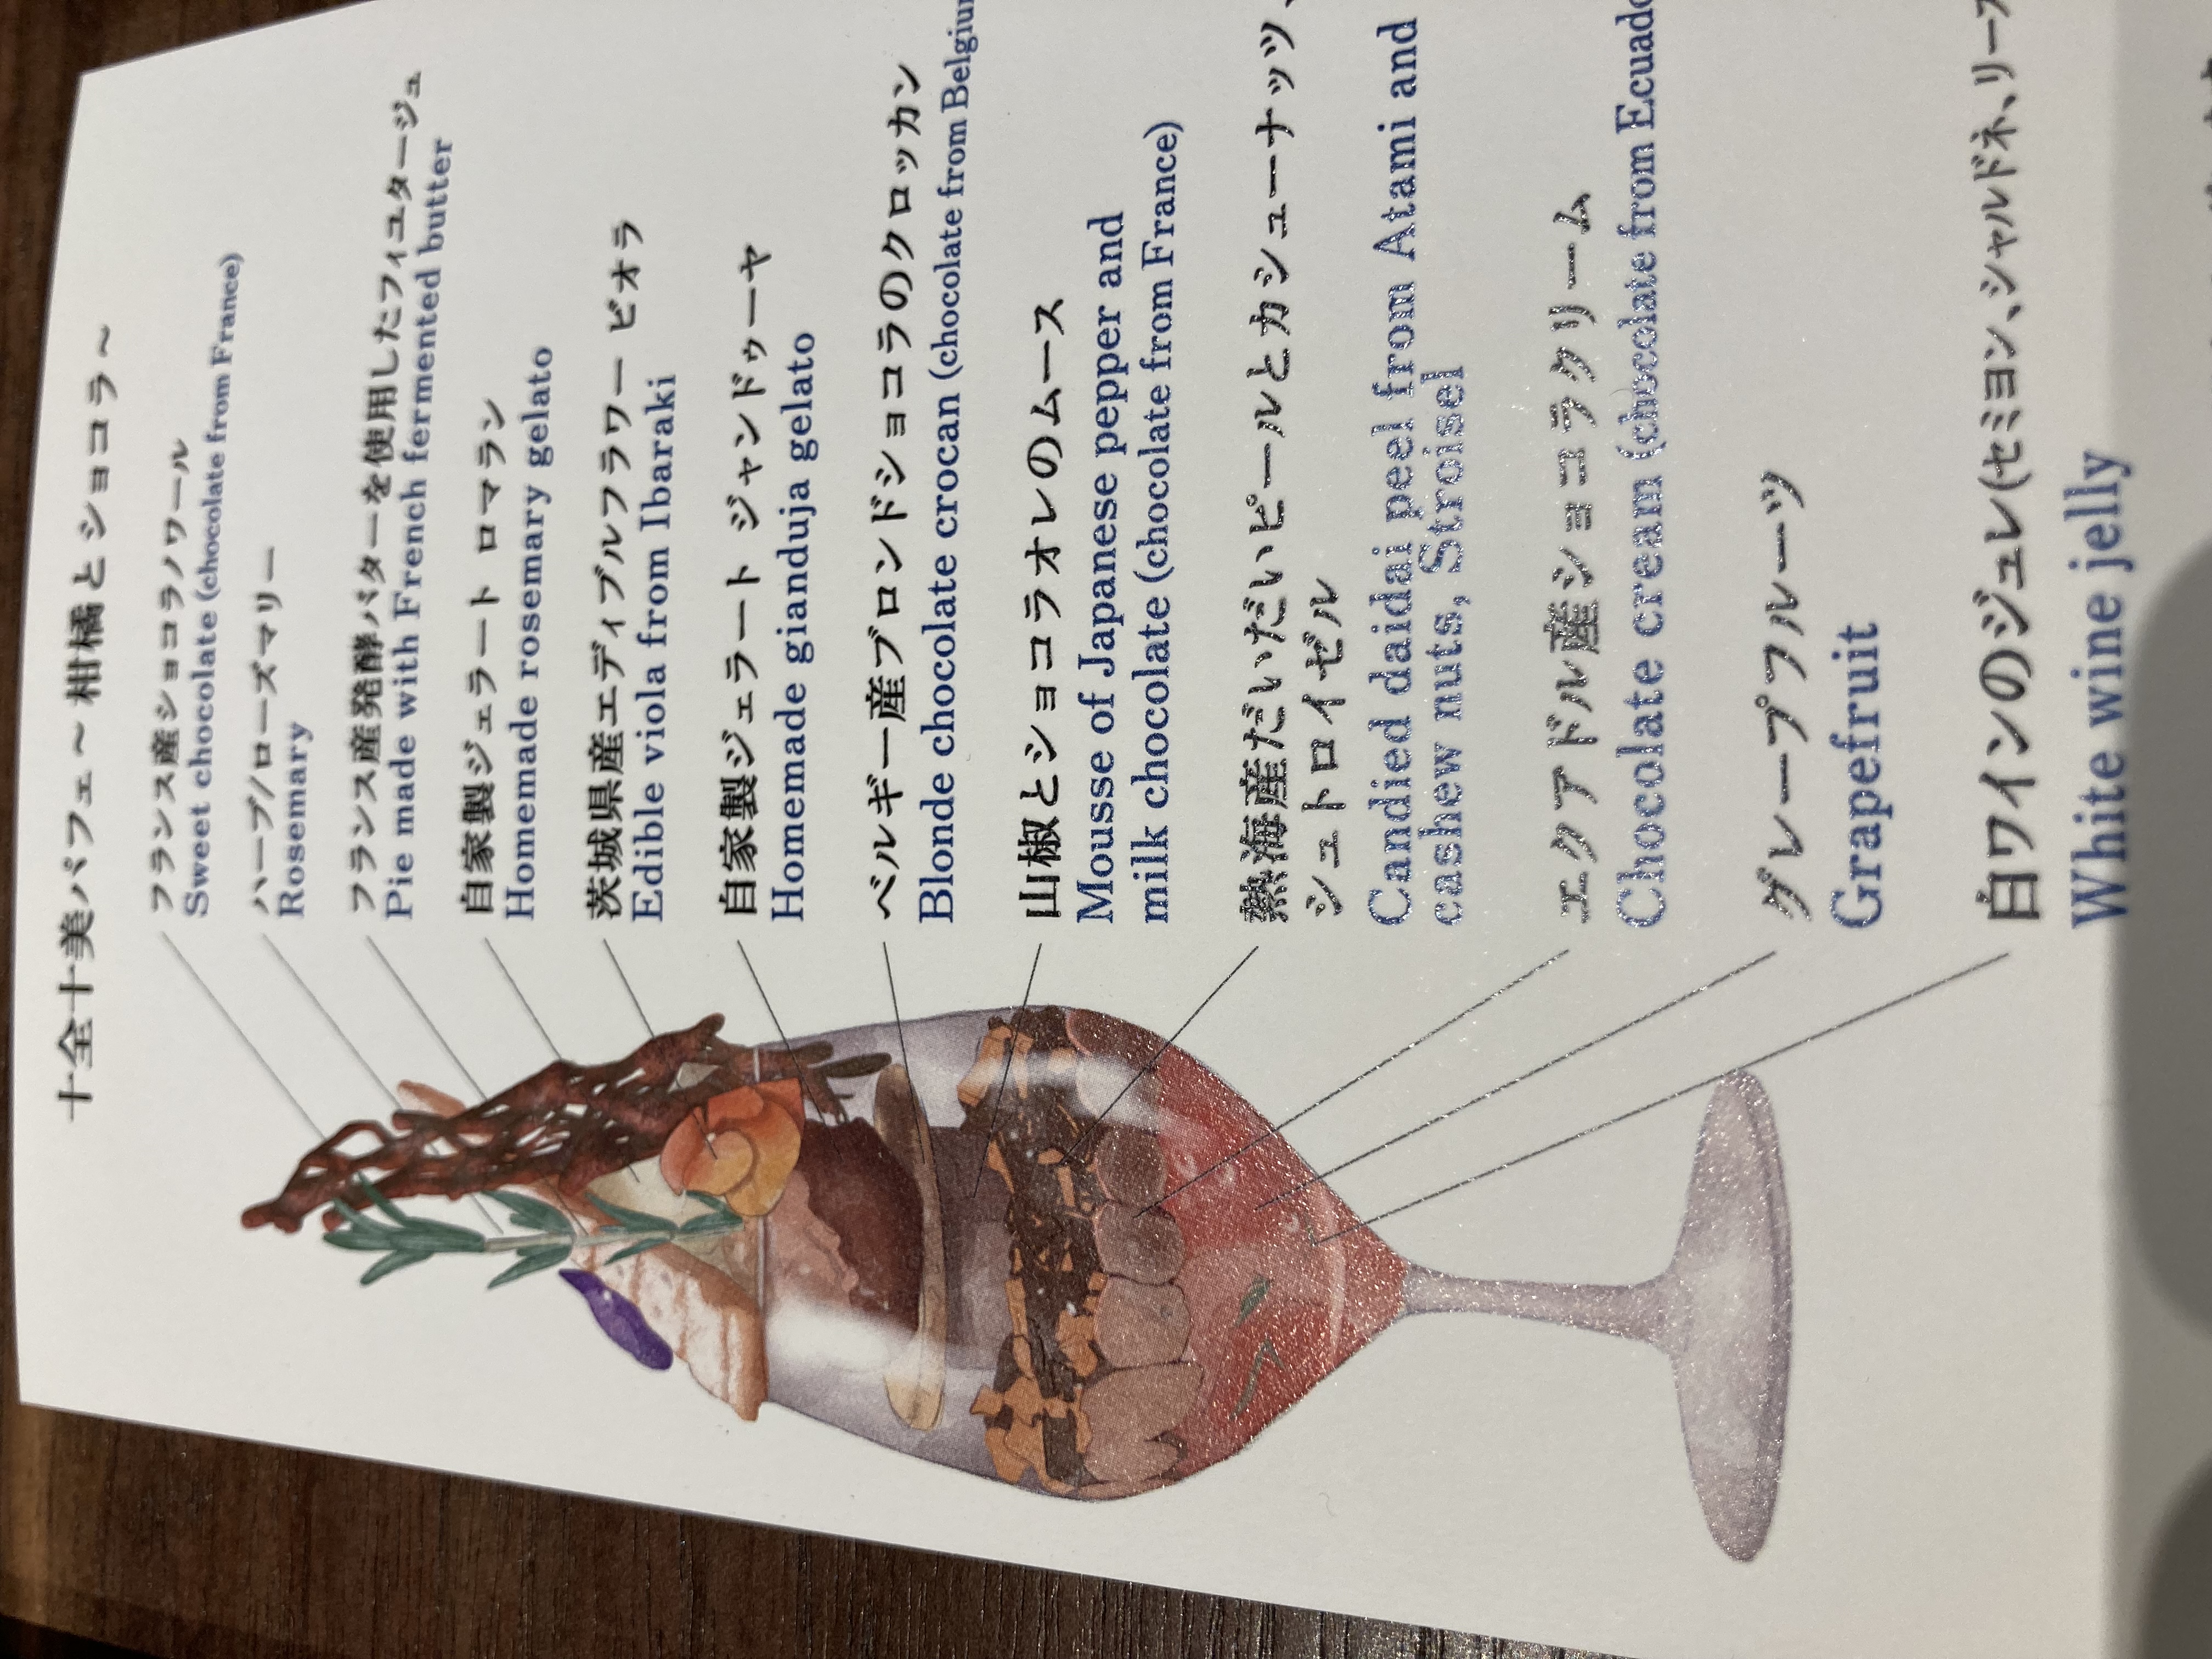 十全十美パフェ ～ 柑橘とショコラ ～
フランス産ショコラノワール
Sweet chocolate (chocolate from France)
ハーブ/ローズマリー
Rosemary
フランス産発酵バターを使用したフィユタージュ
Pie made with French fermented butter
自家製ジェラート ロマラン
Homemade rosemary gelato
茨城県産エディブルフラワー ビオラ
Edible viola from Ibaraki
自家製ジェラート ジャンドゥーヤ
Homemade gianduja gelato
ベルギー産ブロンドショコラのクロッカン
Blonde chocolate crocan (chocolate from Belgiu
山椒とショコラオレのムース
Mousse of Japanese pepper and
milk chocolate (chocolate from France)
熱海産だいだいピールとカシューナッツ、
シュトロイゼル
Candied daidai peel from Atami and
cashew nuts, Stroisel
エクアドル産ショコラクリーム
Chocolate cream (chocolate from Ecuado
グレープフルーツ
Grapefruit
白ワインのジュレ(セミヨン、シャルドネ、リース
White wine jelly